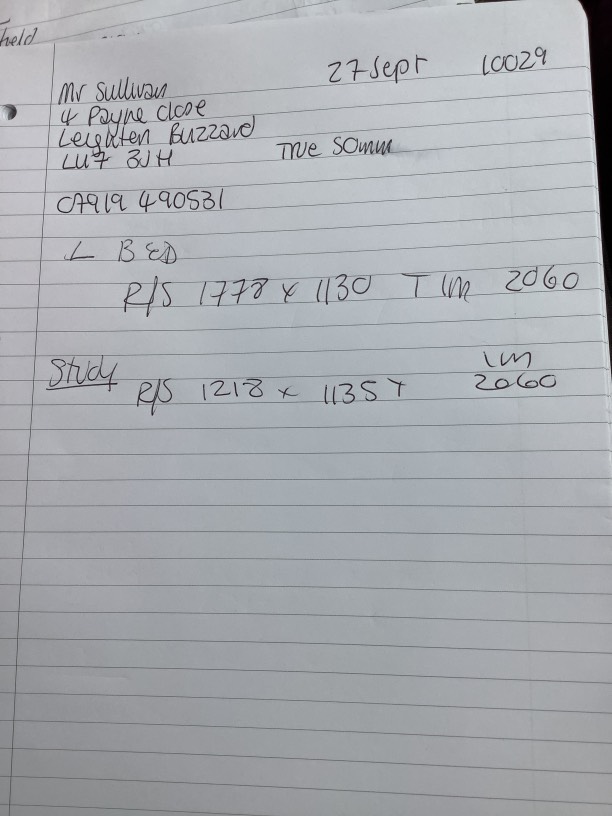 held
27 Sept 10029
Mr Sullivan
4 Payne Close
Leighten Buzzard
LU7 3JH
True 50mm
07919 490531
L BED
R/S 1778 x 1130 T 1m 2060
Study
R/S 1218 x 1135 T 1m 2060